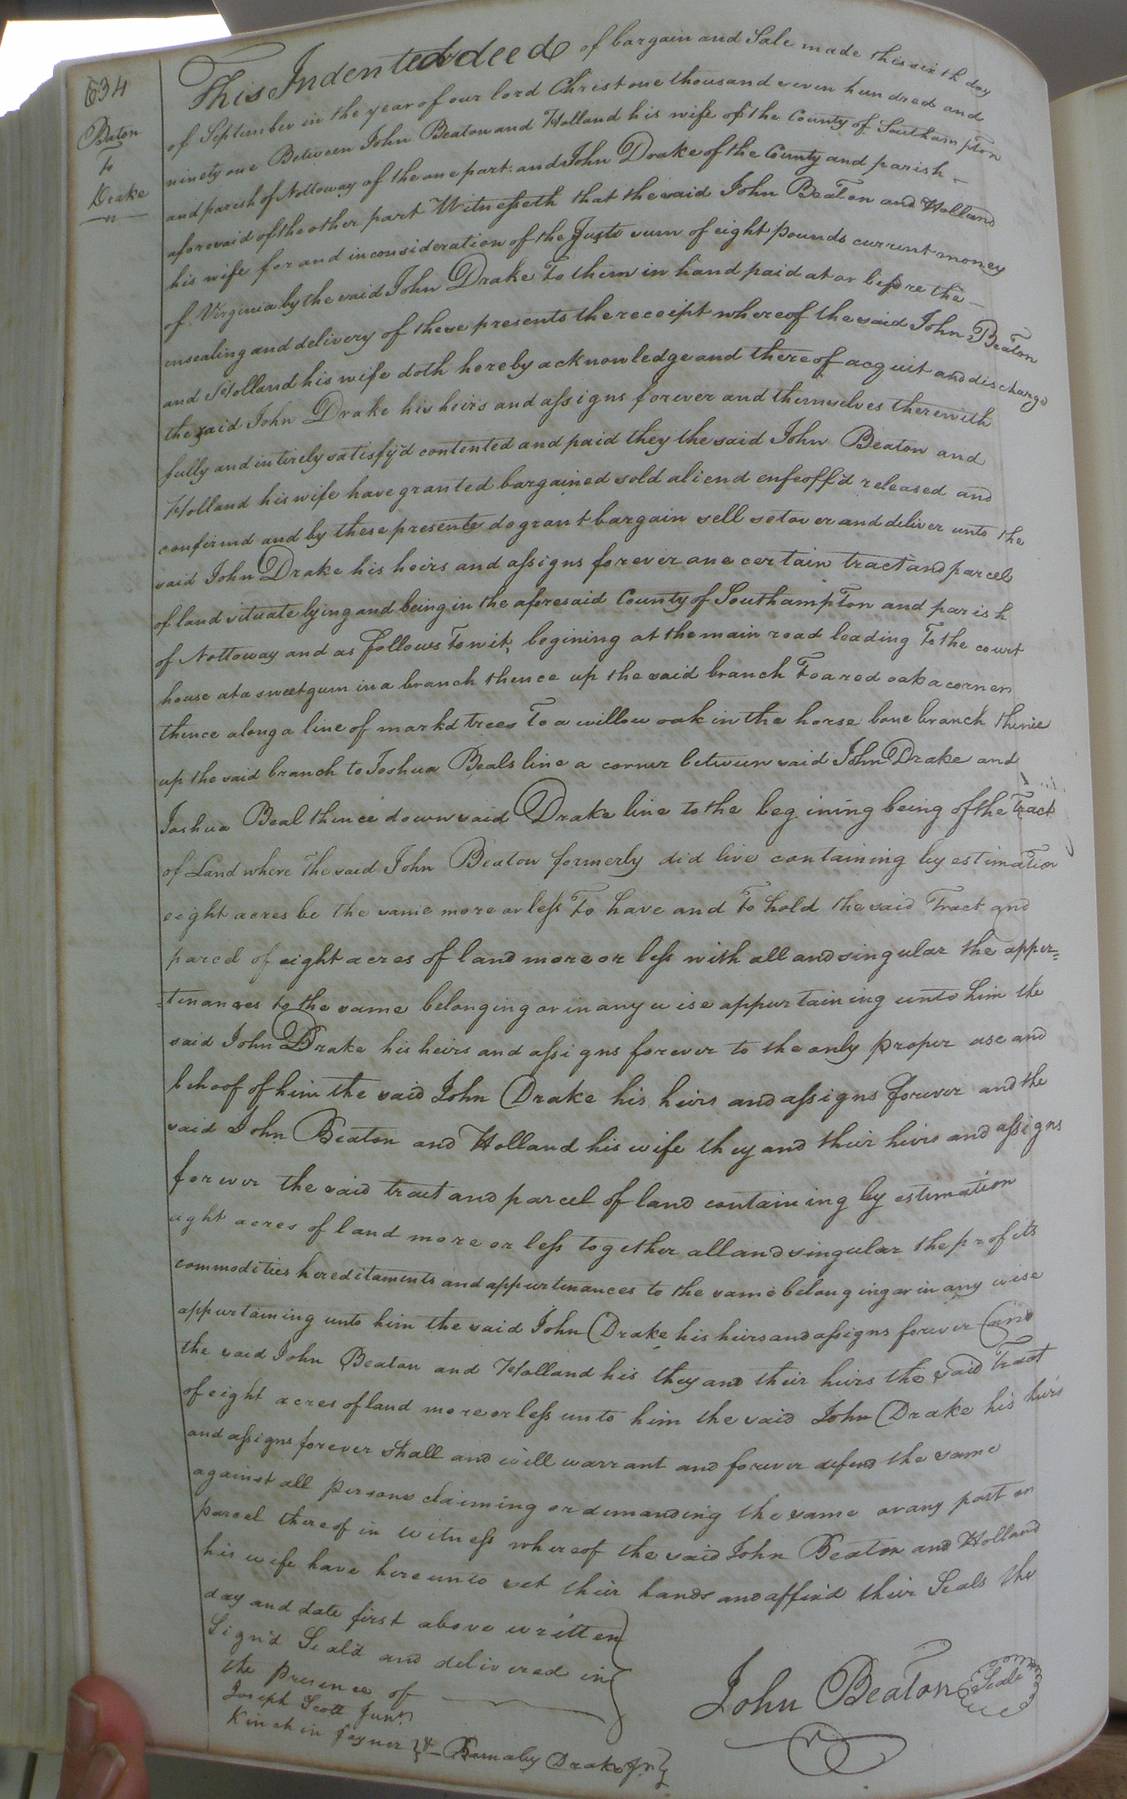 634
Beaton
to
Drake
This Indented deed of bargain and Sale made this sixth day
of September in the year of our lord Christ one thousand seven hundred and
ninety one Between John Beaton and Holland his wife of the County of Southampton
and parish of Nottoway of the one part and John Drake of the County and parish
aforesaid of the other part Witnesseth that the said John Beaton and Holland
his wife for and inconsideration of the Juste sum of eight pounds current money
of Virginia by the said John Drake To them in hand paid at or before the
ensealing and delivery of these presents the receipt whereof the said John Beaton
and Holland his wife doth hereby acknowledge and thereof acquit and discharge
the said John Drake his heirs and assigns forever and themselves therewith
fully and intirely satisfy'd contented and paid they the said John Beaton and
Holland his wife have granted bargained sold aliend enfeoff'd released and
confirmd and by these presents do grant bargain sell setover and deliver unto the
said John Drake his heirs and assigns forever one certain tract and parcel
of land situate lying and being in the aforesaid County of Southampton and parish
of Nottoway and as follows To wit, begining at the main road leading To the court
house at a sweetgum in a branch thence up the said branch To a red oak a corner
thence along a line of markd trees To a willow oak in the horse bone branch thence
up the said branch to Joshua Beals line a corner between said John Drake and
Joshua Beal thence down said Drake line to the begining being of the Tract
of Land where the said John Beaton formerly did live containing by estimation
eight acres be the same more or less To have and To hold the said Tract and
parcel of eight acres of land more or less with all and singular the appur=
=tenances to the same belonging or in any wise appurtaining unto him the
said John Drake his heirs and assigns forever to the only proper use and
behoof of him the said John Drake his heirs and assigns forever and the
said John Beaton and Holland his wife they and their heirs and assigns
forever the said tract and parcel of land containing by estimation
eight acres of land more or less together all and singular the profits
commodities hereditaments and appurtenances to the same belonging or in any wise
appurtaining unto him the said John Drake his heirs and assigns forever and
the said John Beaton and Holland his they and their heirs the said Tract
of eight acres of land more or less unto him the said John Drake his heirs
and assigns forever shall and will warrant and forever defend the same
against all persons claiming or demanding the same or any part or
parcel thereof in witness whereof the said John Beaton and Holland
his wife have hereunto set their hands and affix'd their Seals the
day and date first above written
Sign'd Seal'd and delivered in
the presence of
John Beaton Seale
Joseph Scott Junr.
Kinchin Joyner & Barnaby Drake Jr